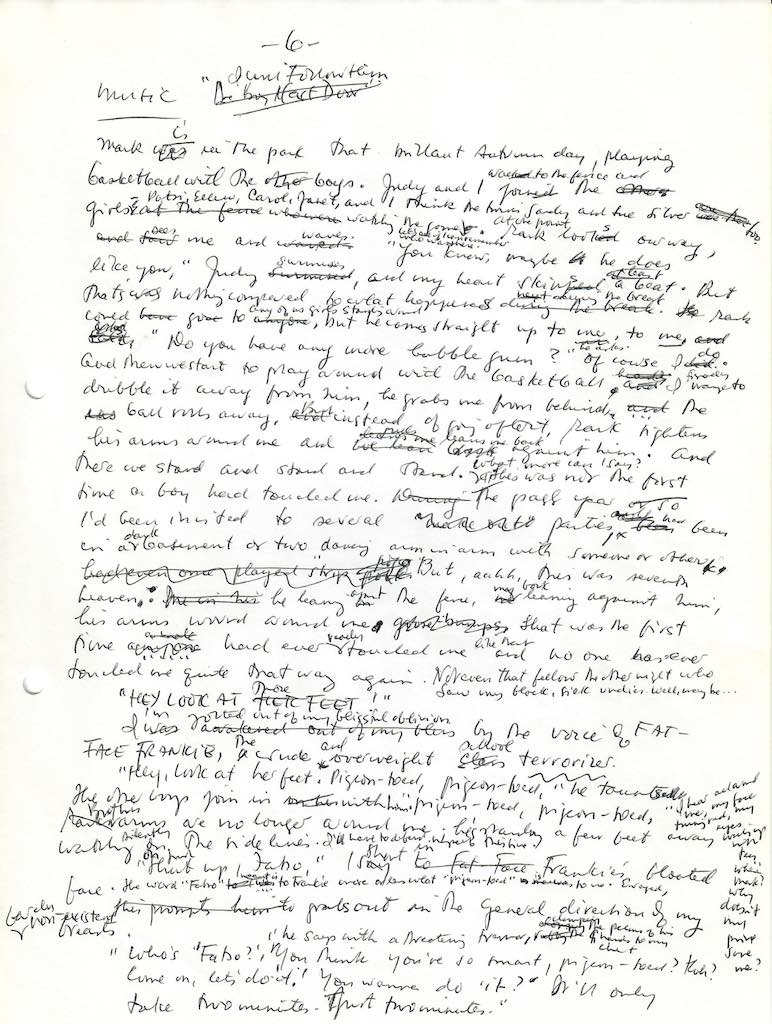 -6-
music "I Will Follow Him
The Boy Next Door"
is
Mark was in the park that brilliant autumn day, playing
basketball with the other boys. Judy and I walked to the fence and joined the
girls, Patsi, Ellen, Carol, Janet, and I think the twins Sandy and Sue Silver
at the fence who were watching the game. At one point, Mark looks our way,
and sees me and waves. "You know, maybe he does
like you," Judy surmises, and my heart skips at least a beat. But
that was nothing compared to what happened next during the break. Mark
could have gone to any of the girls standing around, but he comes straight up to me, to me, and
asks "Do you have any more bubble gum?" Of course I do.
And then we start to play around with the basketball, I manage to
dribble it away from him, he grabs me from behind, and the
ball rolls away, but instead of going after it, Mark tightens
his arms around me and leans me back against him. And
there we stand and stand and stand. What more can I say? This was not the first
time a boy had touched me. During the past year or so
I'd been invited to several "make out" parties, had been
in a dark basement or two dancing arm in arm with someone or other,
had even once played strip poker But, aahh, this was seventh
heaven. he leaning against the fence, my back leaning against him,
his arms wound around me, goose bumps. That was the first
time anyone had ever really touched me like that and no one has ever
touched me quite that way again. Not even that fellow the other night who
saw my black, silk undies. Well, maybe...
"HEY LOOK AT THOSE FEET!"
I'm jolted out of my blissful oblivion
I was awakened out of my bliss by the voice of FAT-
FACE FRANKIE, the crude and overweight school class terrorizer.
"Hey, look at her feet. Pigeon-toed, pigeon-toed," he taunts
The other boys join in "pigeon-toed, pigeon-toed,"
Mark's arms are no longer around me. he's standing a few feet away
watching silently on the sidelines.
"Shut up, Fatso," I shout in to Fat Face Frankie's bloated
face. The word "Fatso" to Frankie more or less what "pigeon-toed" is to me. Enraged,
this prompts him to grabs out in the general direction of my
barely non-existent breasts.
"Who's 'Fatso'?," he says with a threatening tremor, "You think you're so smart, pigeon-toed? Huh?
Come on, let's do it. You wanna do it?" It'll only
take two minutes. Just two minutes."
why doesn't my prince save me?